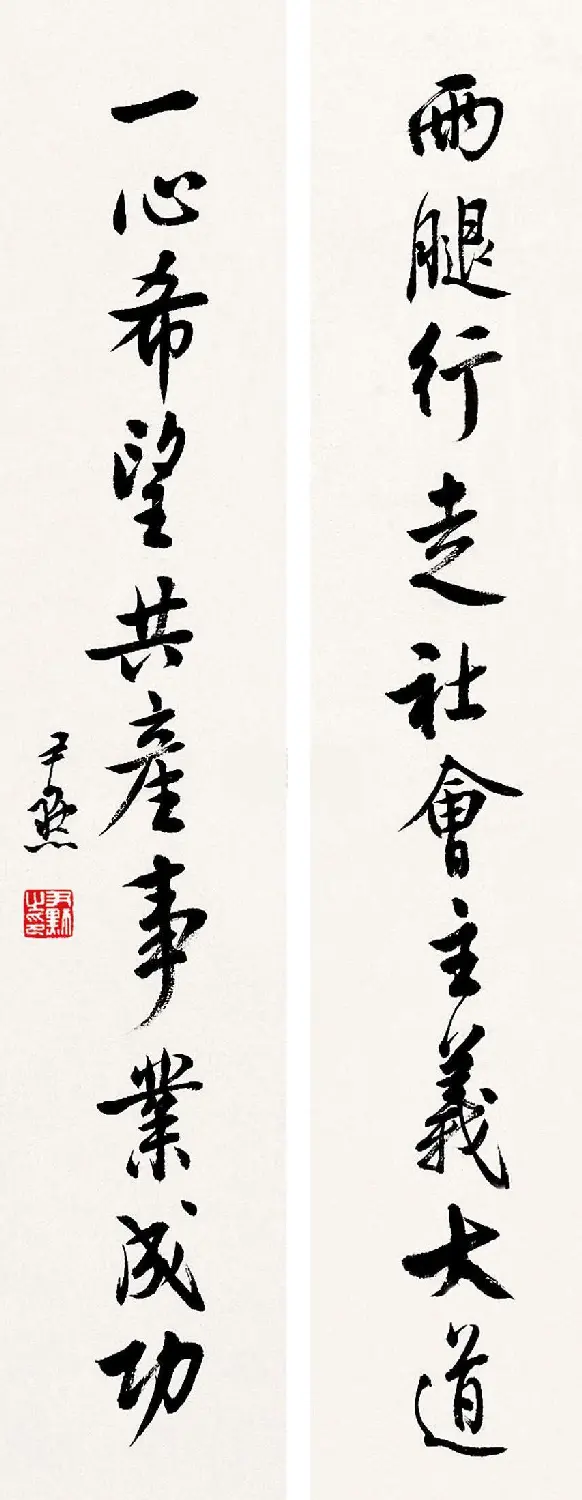 兩腿行走社會主義大道
一心希望共產事業成功
尹默